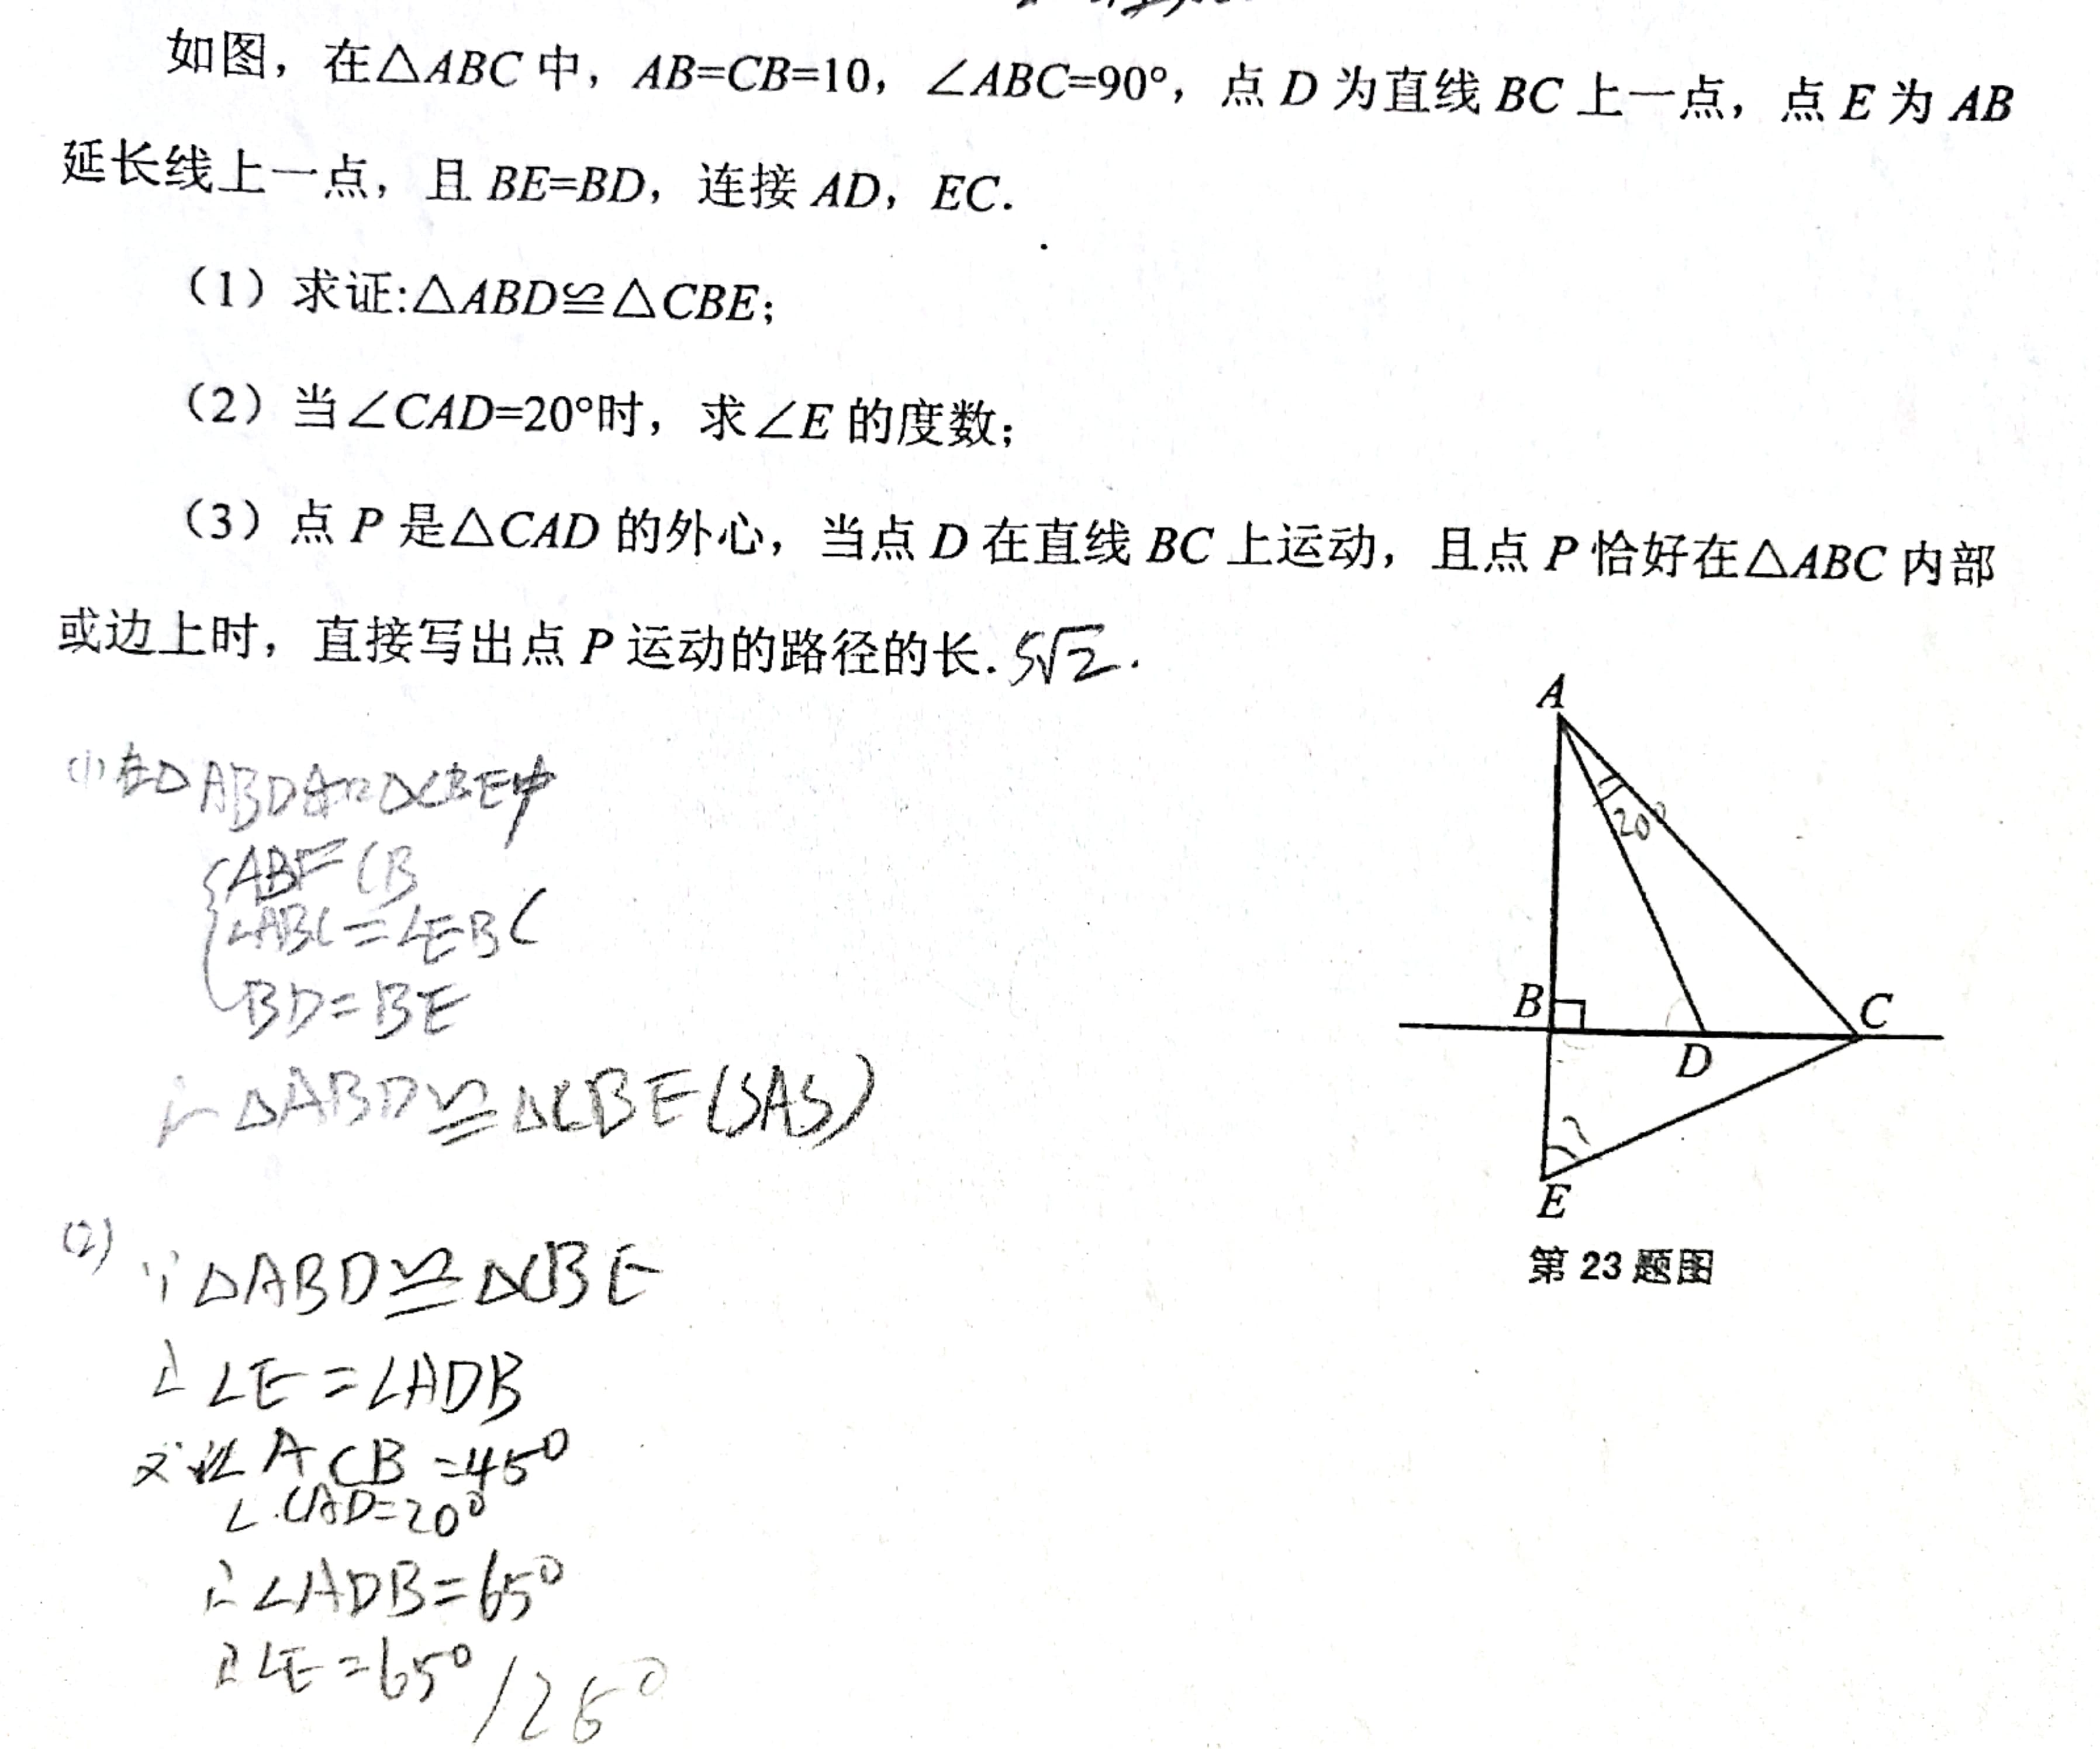 如图，在△ABC中，AB=CB=10，∠ABC=90°，点D为直线BC上一点，点E为AB
延长线上一点，且BE=BD，连接AD，EC.
（1）求证:△ABD≌△CBE；
（2）当∠CAD=20°时，求∠E的度数；
（3）点P是△CAD的外心，当点D在直线BC上运动，且点P恰好在△ABC内部
或边上时，直接写出点P运动的路径的长. 5√2.
(1) 在△ABD和△CBE中
AB=CB
∠ABC=∠EBC
BD=BE
∴△ABD≌△CBE(SAS)
(2)
∵△ABD≌△CBE
∴∠E=∠ADB
又∵∠ACB=45°
∠CAD=20°
∴∠ADB=65°
∴∠E=65°/25°
A
20°
B
C
D
?
E
第23题图